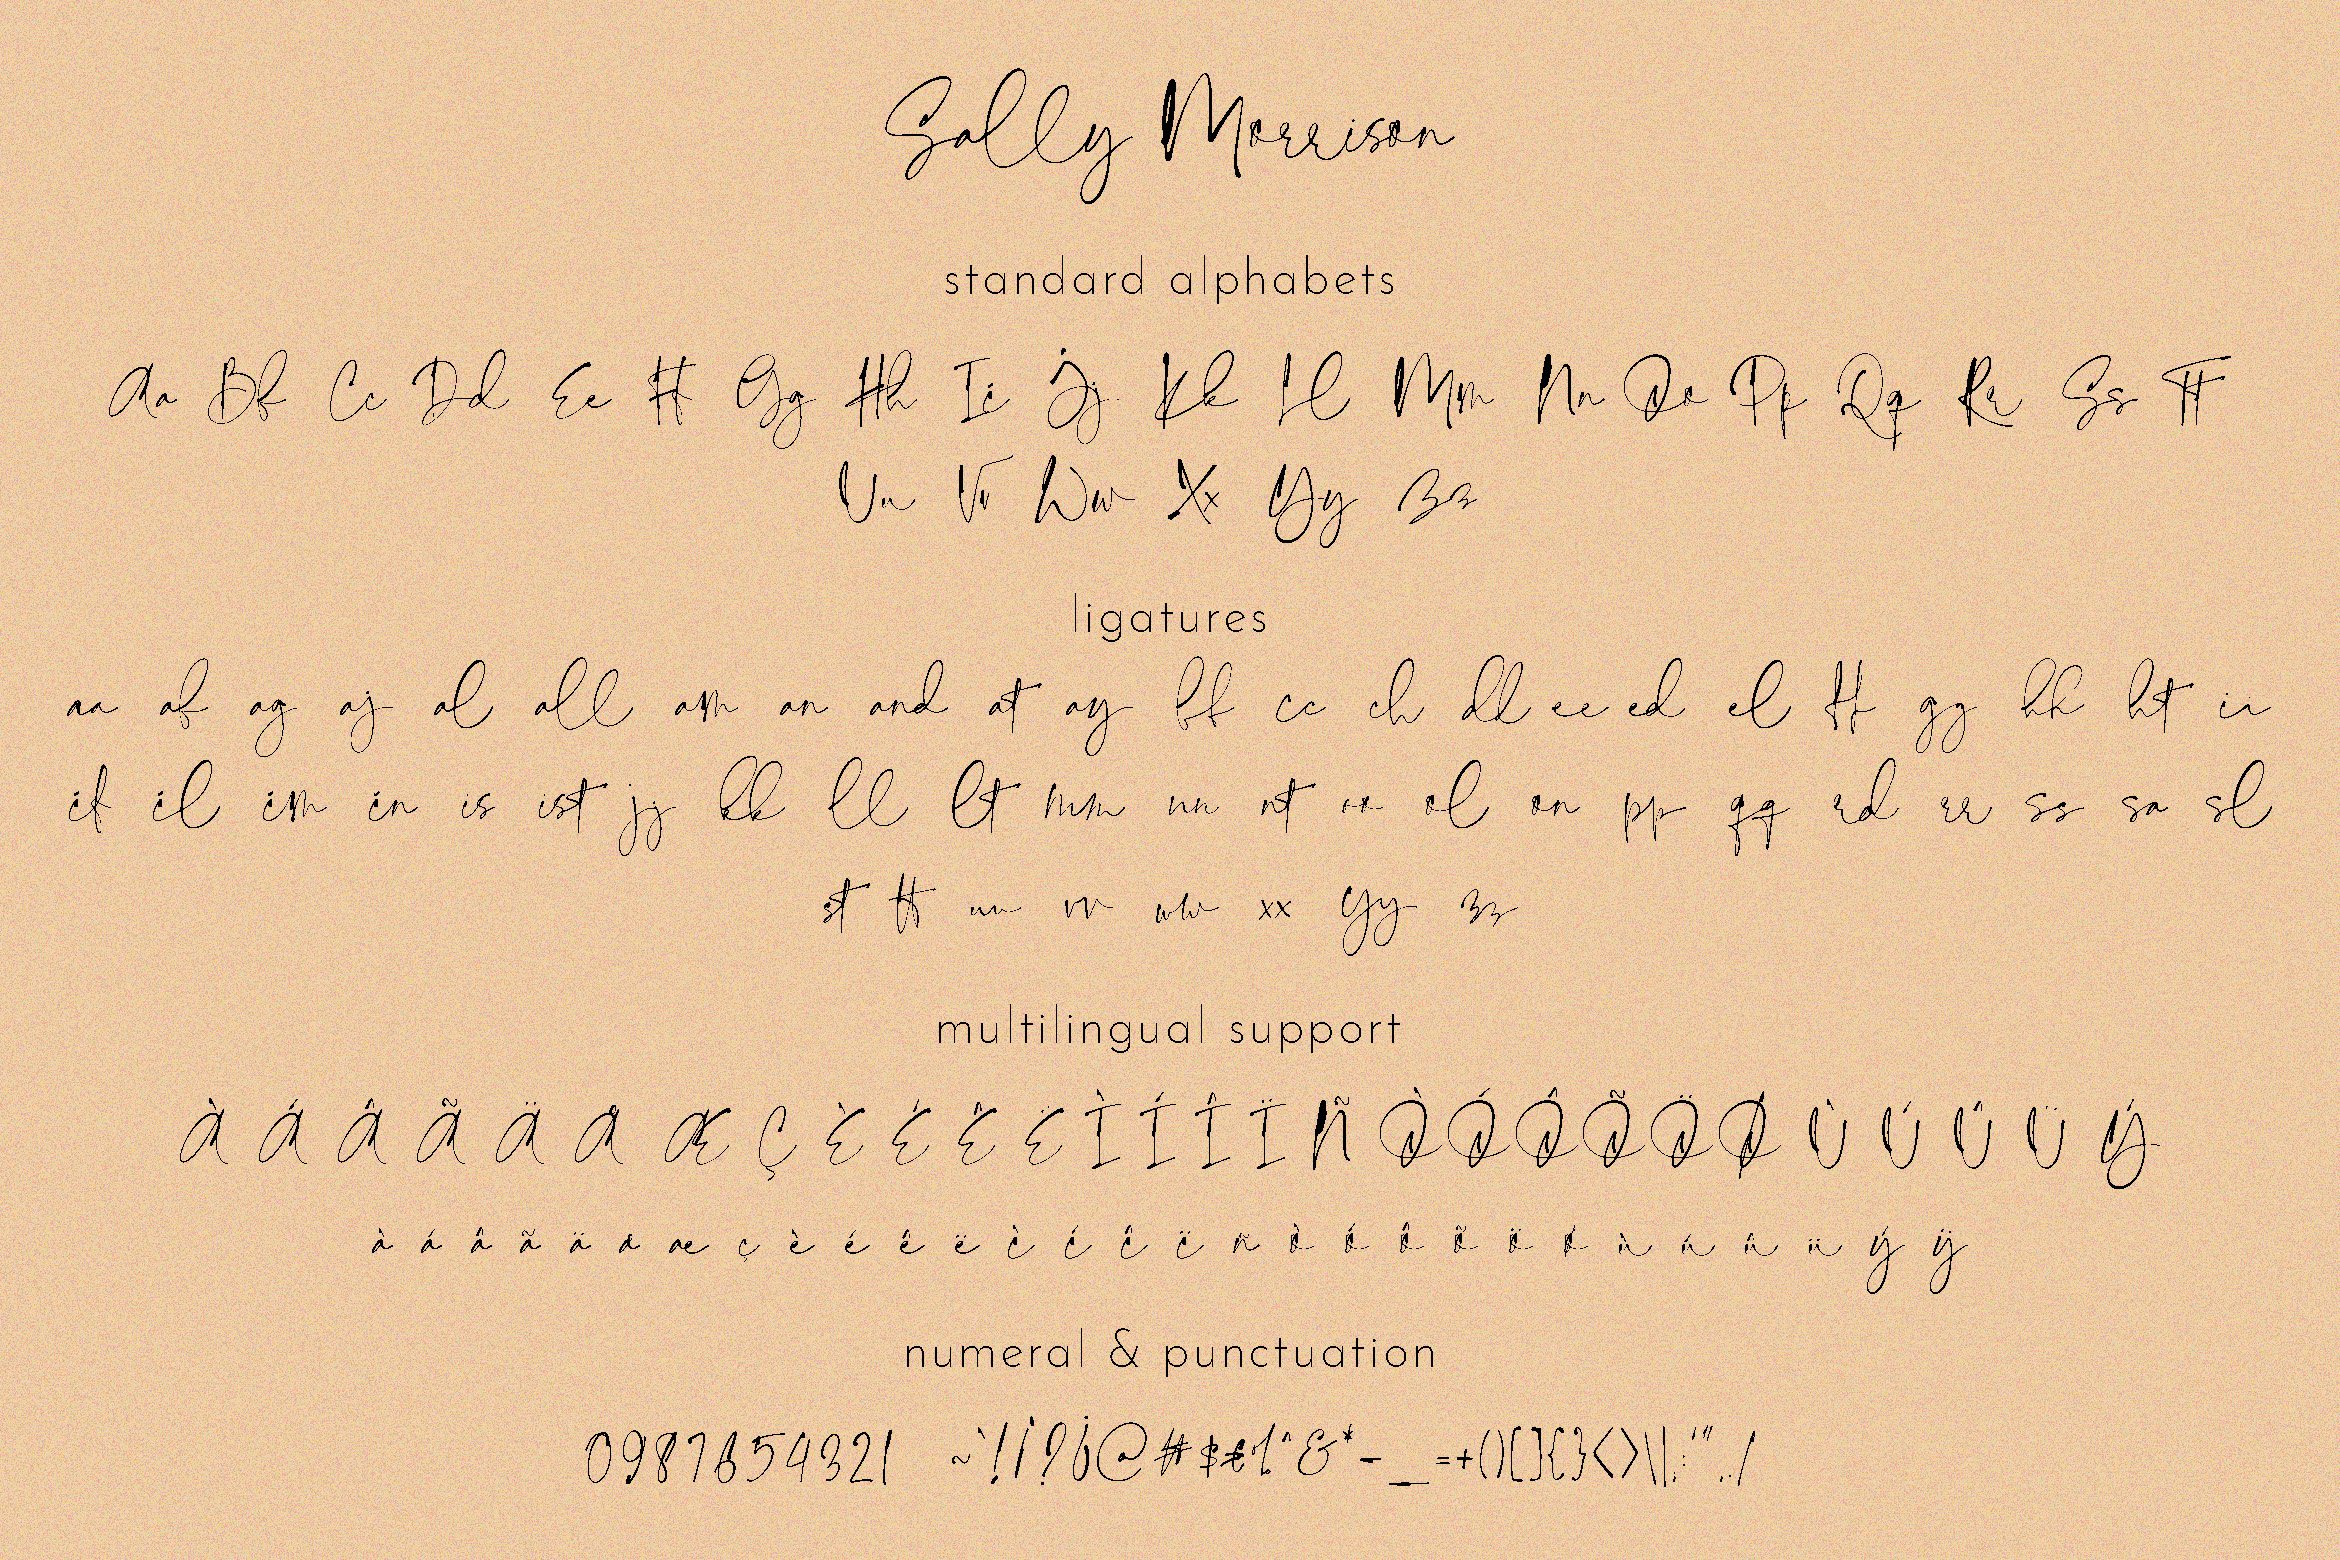 Sally Morrison
standard alphabets
Aa Bb Cc Dd Ee Ff Gg Hh Ii Jj Kk Ll Mm Nn Oo Pp Qq Rr Ss Tt
Uu Vv Ww Xx Yy Zz
ligatures
aa af ag aj al all am an and at ay bb cc ch dd ee ed el ff gg hh ht ir
if il im in is ist jj kk ll lt mm nn nt oo ol on pp qq rd rr ss sa sl
st tt uu vv ww xx yy zz
multilingual support
À Á Â Ã Ä Å Æ Ç È É Ê Ë Ì Í Î Ï Ñ Ò Ó Ô Õ Ö Ø Ù Ú Û Ü Ý
à á â ã ä å æ ç è é ê ë ì í î ï ñ ò ó ô õ ö ø ù ú û ü ý ÿ
numeral & punctuation
0987654321 ~`!¡?¿@#$€%^&*-_=+()[]{}<>\|;:'",./